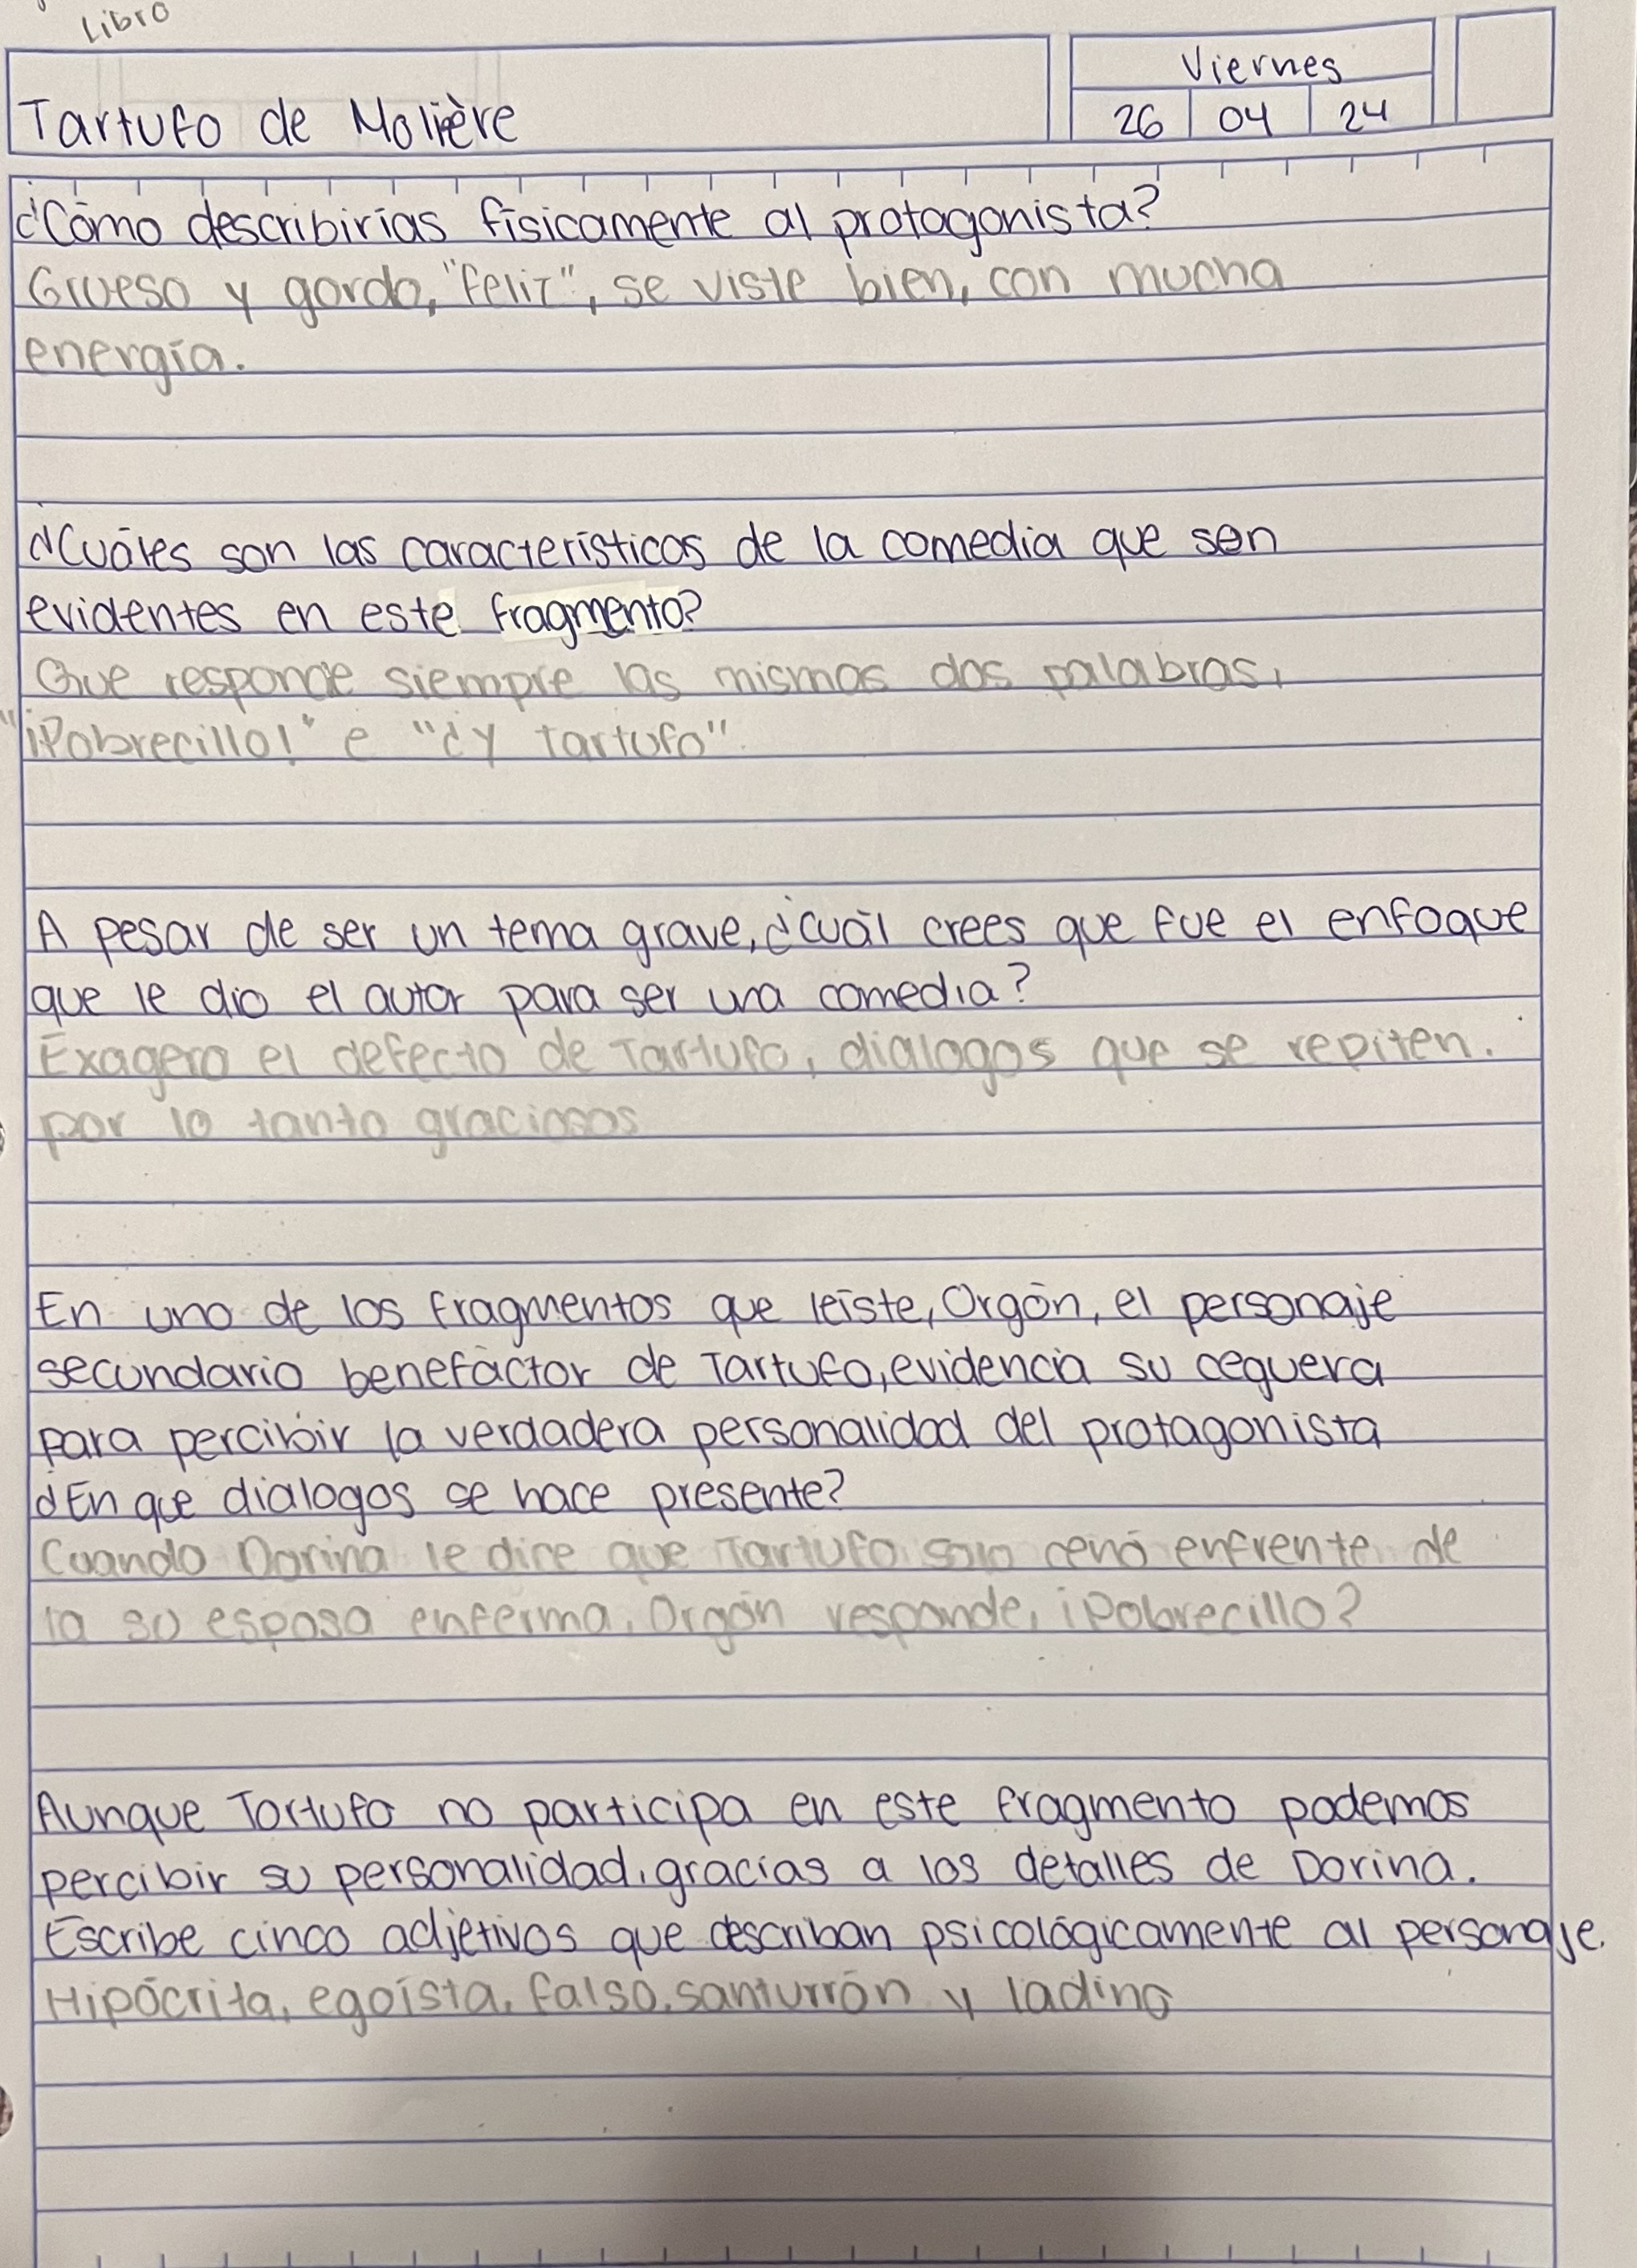 Libro
Tartufo de Molière
Viernes
26 04 24
¿Cómo describirías físicamente al protagonista?
Grueso y gordo, "feliz", se viste bien, con mucha
energía.
¿Cuáles son las características de la comedia que son
evidentes en este fragmento?
Que responde siempre las mismas dos palabras,
"¡Pobrecillo!" e "¿y tartufo".
A pesar de ser un tema grave, ¿cuál crees que fue el enfoque
que le dio el autor para ser una comedia?
Exagero el defecto de Tartufo, dialogos que se repiten.
por lo tanto graciosos
En uno de los fragmentos que leíste, Orgón, el personaje
secundario benefáctor de Tartufo, evidencia su ceguera
para percibir la verdadera personalidad del protagonista
¿En que dialogos se hace presente?
Cuando Dorina le dice que Tartufo solo cenó enfrente de
la su esposa enferma, Orgón responde, ¡Pobrecillo?
Aunque Tartufo no participa en este fragmento podemos
percibir su personalidad, gracias a los detalles de Dorina.
Escribe cinco adjetivos que describan psicológicamente al personaje.
Hipócrita, egoísta, falso, santurrón y ladino